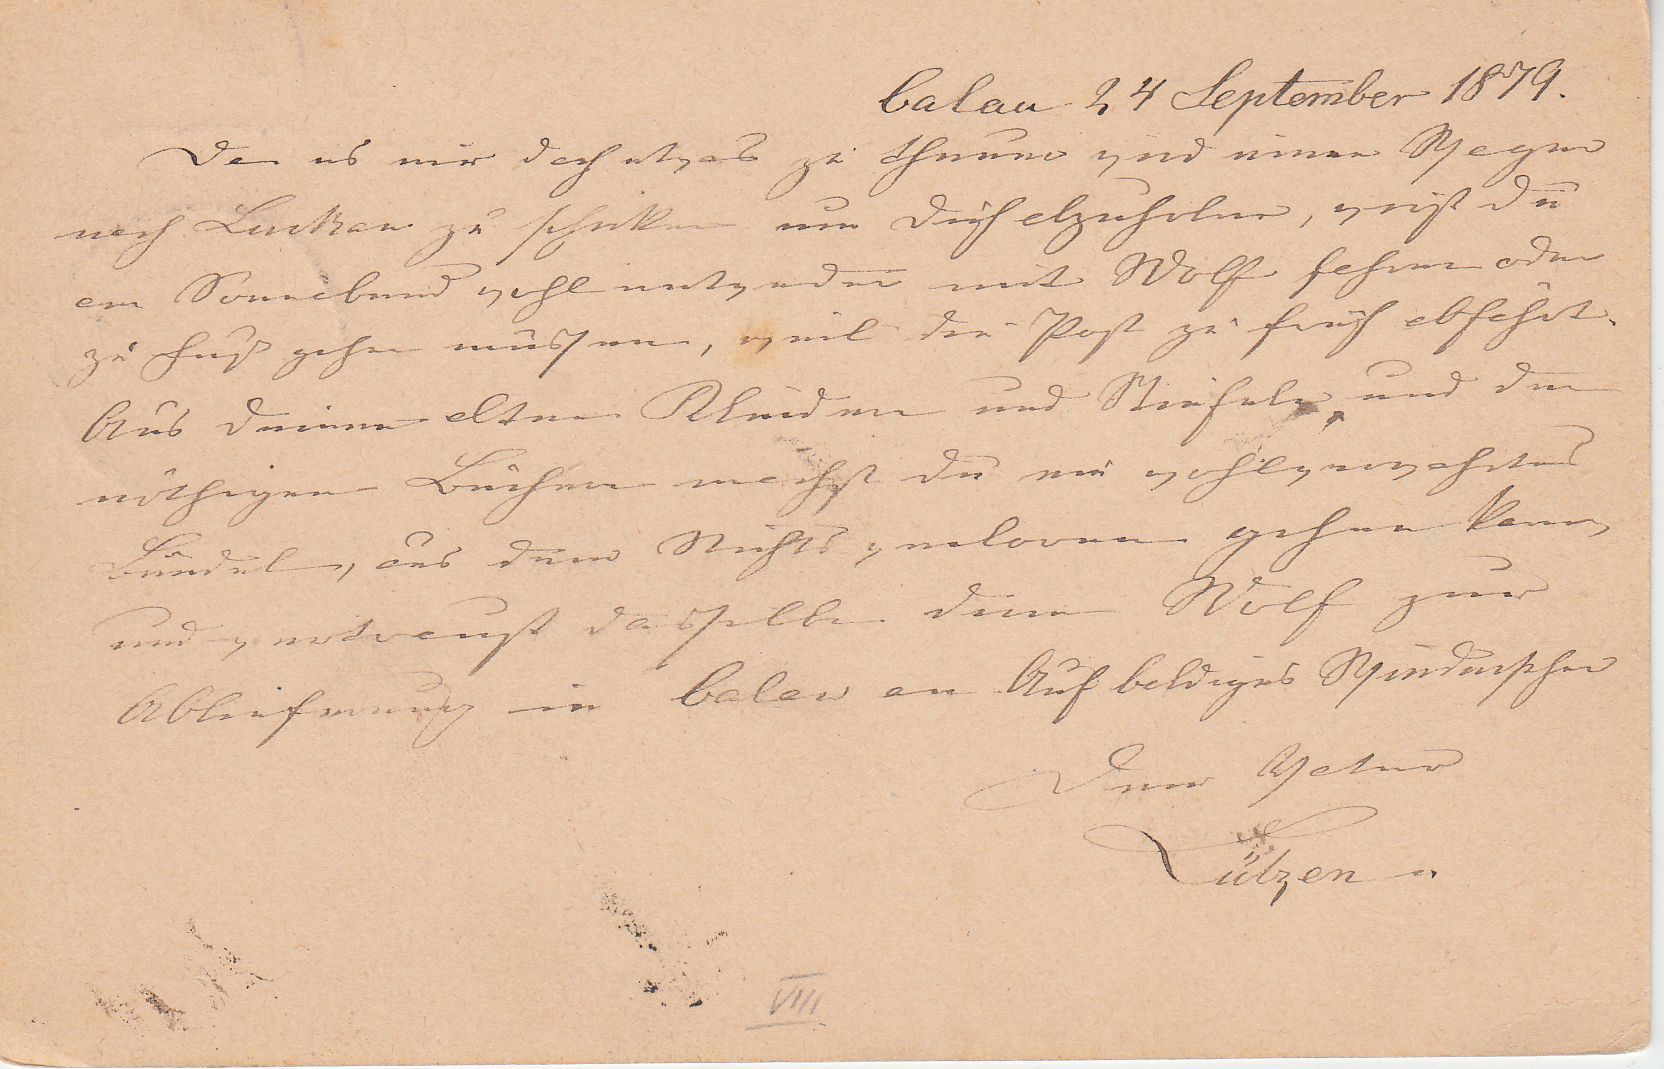 Calau 24 September 1879.
Da es mir doch etwas zu theuer wird einen Wagen
nach Luckau zu schicken um Dich abzuholen, wirst Du
am Sonnabend wohl entweder mit Wolff fahren oder
zu Fuß gehen müssen, weil die Post zu früh abfährt.
Aus Deinen alten Kleidern und Stiefeln und den
nöthigen Büchern machst Du ein wohlverwahrtes
Bündel, aus dem Nichts verloren gehen kann,
und vertraust dasselbe dem Wolff zur
Ablieferung in Calau an Auf baldiges Wiedersehen
Dein Vater
Lützen
VIII